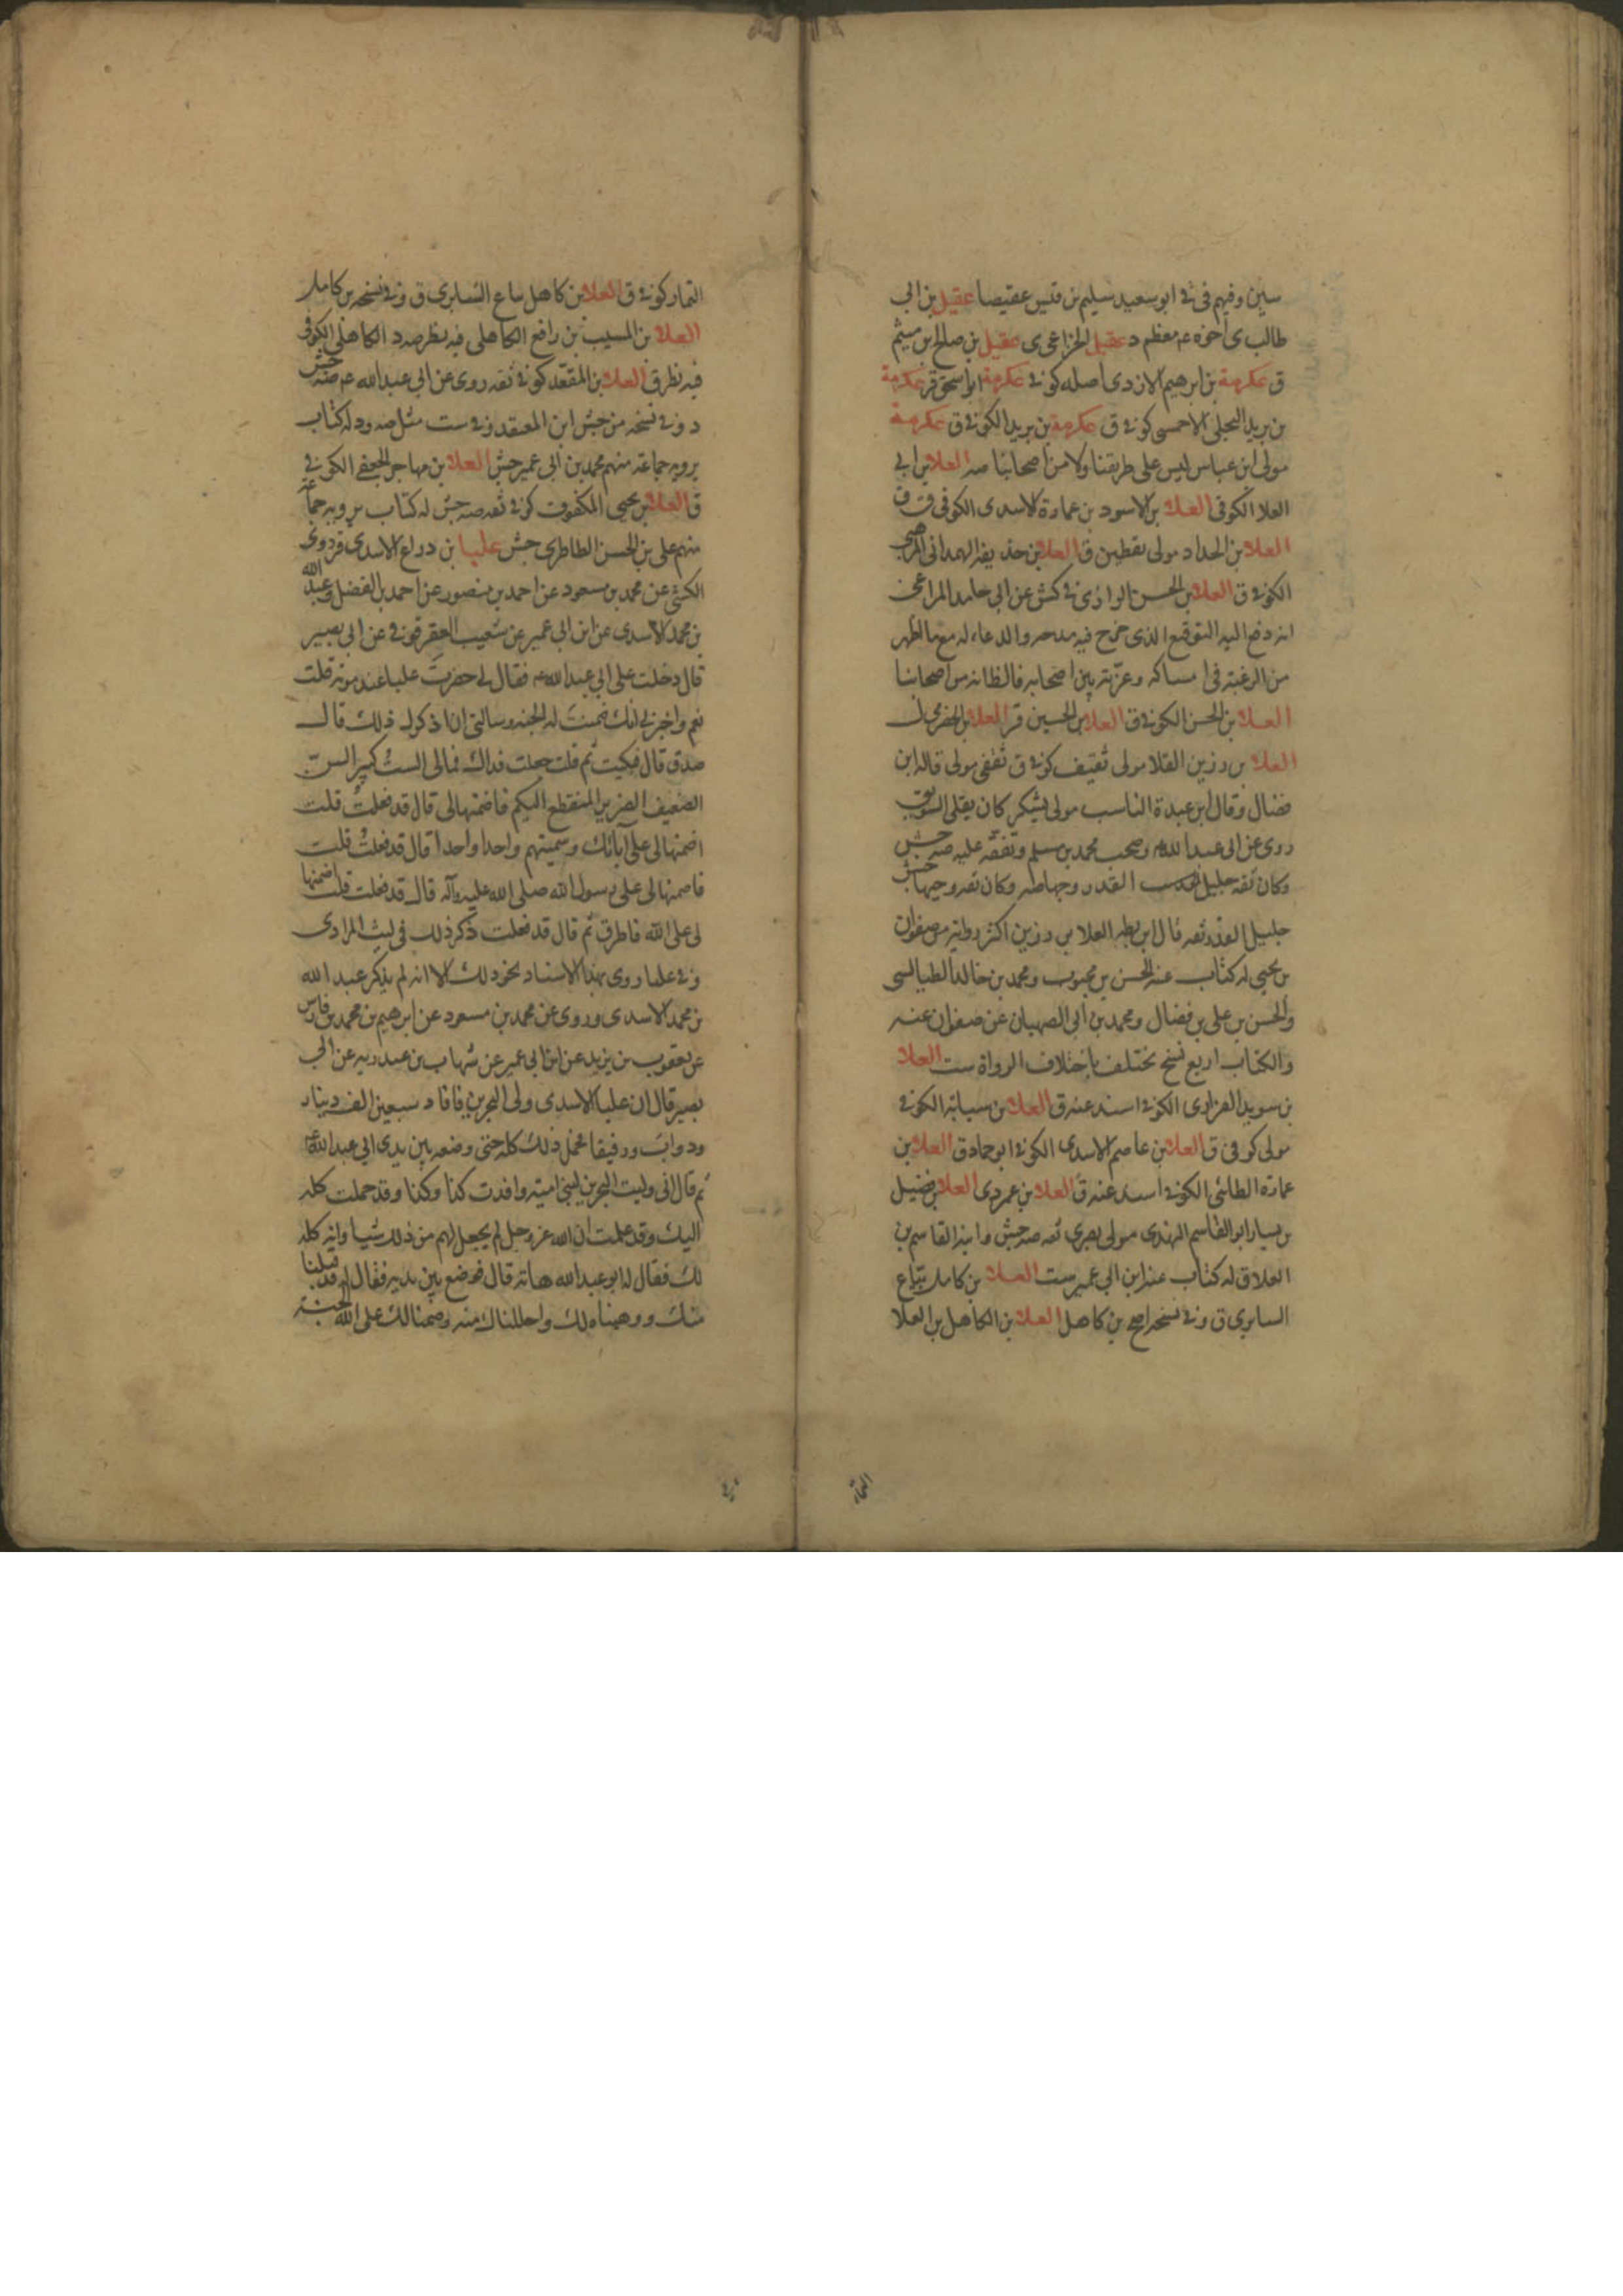 سين وفيهم في في ابو سعيد سليم بن قيس عقيصا عقيل بن ابي
طالب ى اخوه عم معظم د عقيل الخزاعى ى عقيل بن صالح بن ميثم
ق عكرمة بن ابرهيم الازدى اصله كوفى عكرمة ابو اسحق قر عكرمة
بن بريد البجلى الاحمسى كوفى ق عكرمة بن بريد الكوفى ق عكرمة
مولى ابن عباس ليس على طريقنا ولا من اصحابنا صه العلا بن ابى
العلا الكوفى العلا بن الاسود بن عمارة الاسدى الكوفى ق
العلا بن الحداد مولى يقطين ق العلا بن حذيفه الهمدانى المرهبى
الكوفى ق العلا بن الحسن الرازى فى كش عن ابى حامد المراغى
انه دفع اليه التوقيع الذى خرج فيه مدحه والدعاء له مع ما اظهر
من الرغبة فى امساكه وعزته بين اصحابه فالظانه من اصحابنا
العلا بن الحسن الكوفى ق العلا بن الحسين قر العلا بن الحضرمى ل
العلا بن رزين القلا مولى ثقيف كوفى ق ثقفى مولى قاله ابن
فضال وقال ابن عبدة الناسب مولى يشكر كان يقلى السويق
روى عن ابى عبد الله وصحب محمد بن مسلم وتفقه عليه صه جش
وكان ثقه جليل القدر وجها صه وكان ثقه وجيها جش
جليل القدر ثقه قال ابن بطه العلا بن رزين اكثر رواية من صفوان
بن يحيى له كتاب عنه الحسن بن محبوب ومحمد بن خالد الطيالسى
والحسن بن على بن فضال ومحمد بن ابى الصهبان عن صفوان عنه
والكتاب اربع نسخ تختلف باختلاف الرواة ست العلا
بن سويد الفزارى الكوفى اسند عنه ق العلا بن سيابة الكوفى
مولى كوفى ق العلا بن عاصم الاسدى الكوفى ابو حماد ق العلا بن
عمارة الطائى الكوفى اسند عنه ق العلا بن عمر دى العلا بن فضيل
بن يسار ابو القاسم النهدى مولى بصرى ثقه صه جش وابنه القاسم بن
العلا ق له كتاب عنه ابن ابى عمير ست العلا بن كامل بياع
السابرى ق وفى نسخه اصح بن كاهل العلا بن الكاهل بن العلا
التمار
التمار كوفى ق العلا بن كاهل بياع السابرى ق وفى نسخه بن كامل
العلا بن المسيب بن رافع الكاهلى فيه نظر صه د الكاهلى الكوفى
فيه نظر ق العلا بن المقعد كوفى ثقه روى عن ابى عبد الله عم صه جش
د وفى نسخه من جش ابن المعقد وفى ست مثل صه ود له كتاب
يرويه جماعة منهم محمد بن ابى عمير جش العلا بن مهاجر الجعفى الكوفى
ق العلا بن يحيى المكفوف كوفى ثقه صه جش له كتاب يرويه جماعة
منهم على بن الحسن الطاطرى جش عليا بن دراع الاسدى قر روى
الكشى عن محمد بن مسعود عن احمد بن منصور عن احمد بن الفضل وعبد الله
بن محمد الاسدى عن ابن ابى عمير عن شعيب العقرقوفى عن ابى بصير
قال دخلت على ابى عبد الله عه فقال لى حضرتَ عليا عند موته قلت
نعم واخبرنى انك ضمنت له الجنه وسالنى ان اذكرك ذلك قال
صدق قال فبكيت ثم قلت جعلت فداك فمالى الست كبير السن
الضعيف الضرير المنقطع اليكم فاضمنها لى قال قد فعلتُ قلت
اضمنها لى على آبائك وسميتهم واحدا واحدا قال قد فعلتُ قلت
فاضمنها لى على رسول الله صلى الله عليه وآله قال قد فعلت قلت اضمنها
لى على الله فاطرق ثم قال قد فعلت ذكر ذلك فى ليث المرادى
وفى عليا روى بهذا الاسناد نحو ذلك الا انه لم يذكر عبد الله
بن محمد الاسدى وروى عن محمد بن مسعود عن ابرهيم بن محمد بن فارس
عن يعقوب بن يزيد عن ابن ابى عمير عن شهاب بن عبد ربه عن ابى
بصير قال ان عليا الاسدى ولى البحرين فافاد سبعين الف دينار
ودواب ورقيقا فحمل ذلك كله حتى وضعه بين يدى ابى عبد الله عم
ثم قال انى وليت البحرين لبنى امية وافدت كذا وكذا وقد حملت كله
اليك وقد علمت ان الله عز وجل لم يجعل لهم من ذلك شيا وانه كله
لك فقال له ابو عبد الله هاته قال فوضع بين يديه فقال له قد قبلنا
منك ووهبناه لك واحللناك منه وضمنا لك على الله الجنة